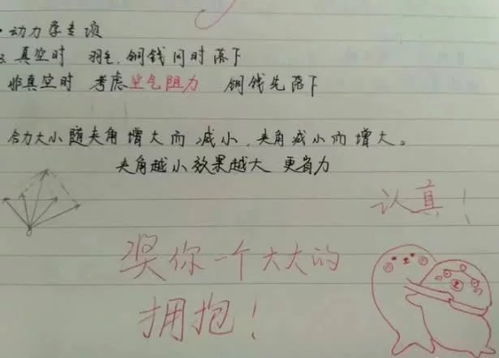 ·动力学专项
2. 真空时 羽毛,铜钱同时落下
非真空时 考虑空气阻力 铜钱先落下
合力大小随夹角增大而减小,夹角减小而增大。
夹角越小效果越大 更省力
认真!
奖你一个大大的
拥抱!